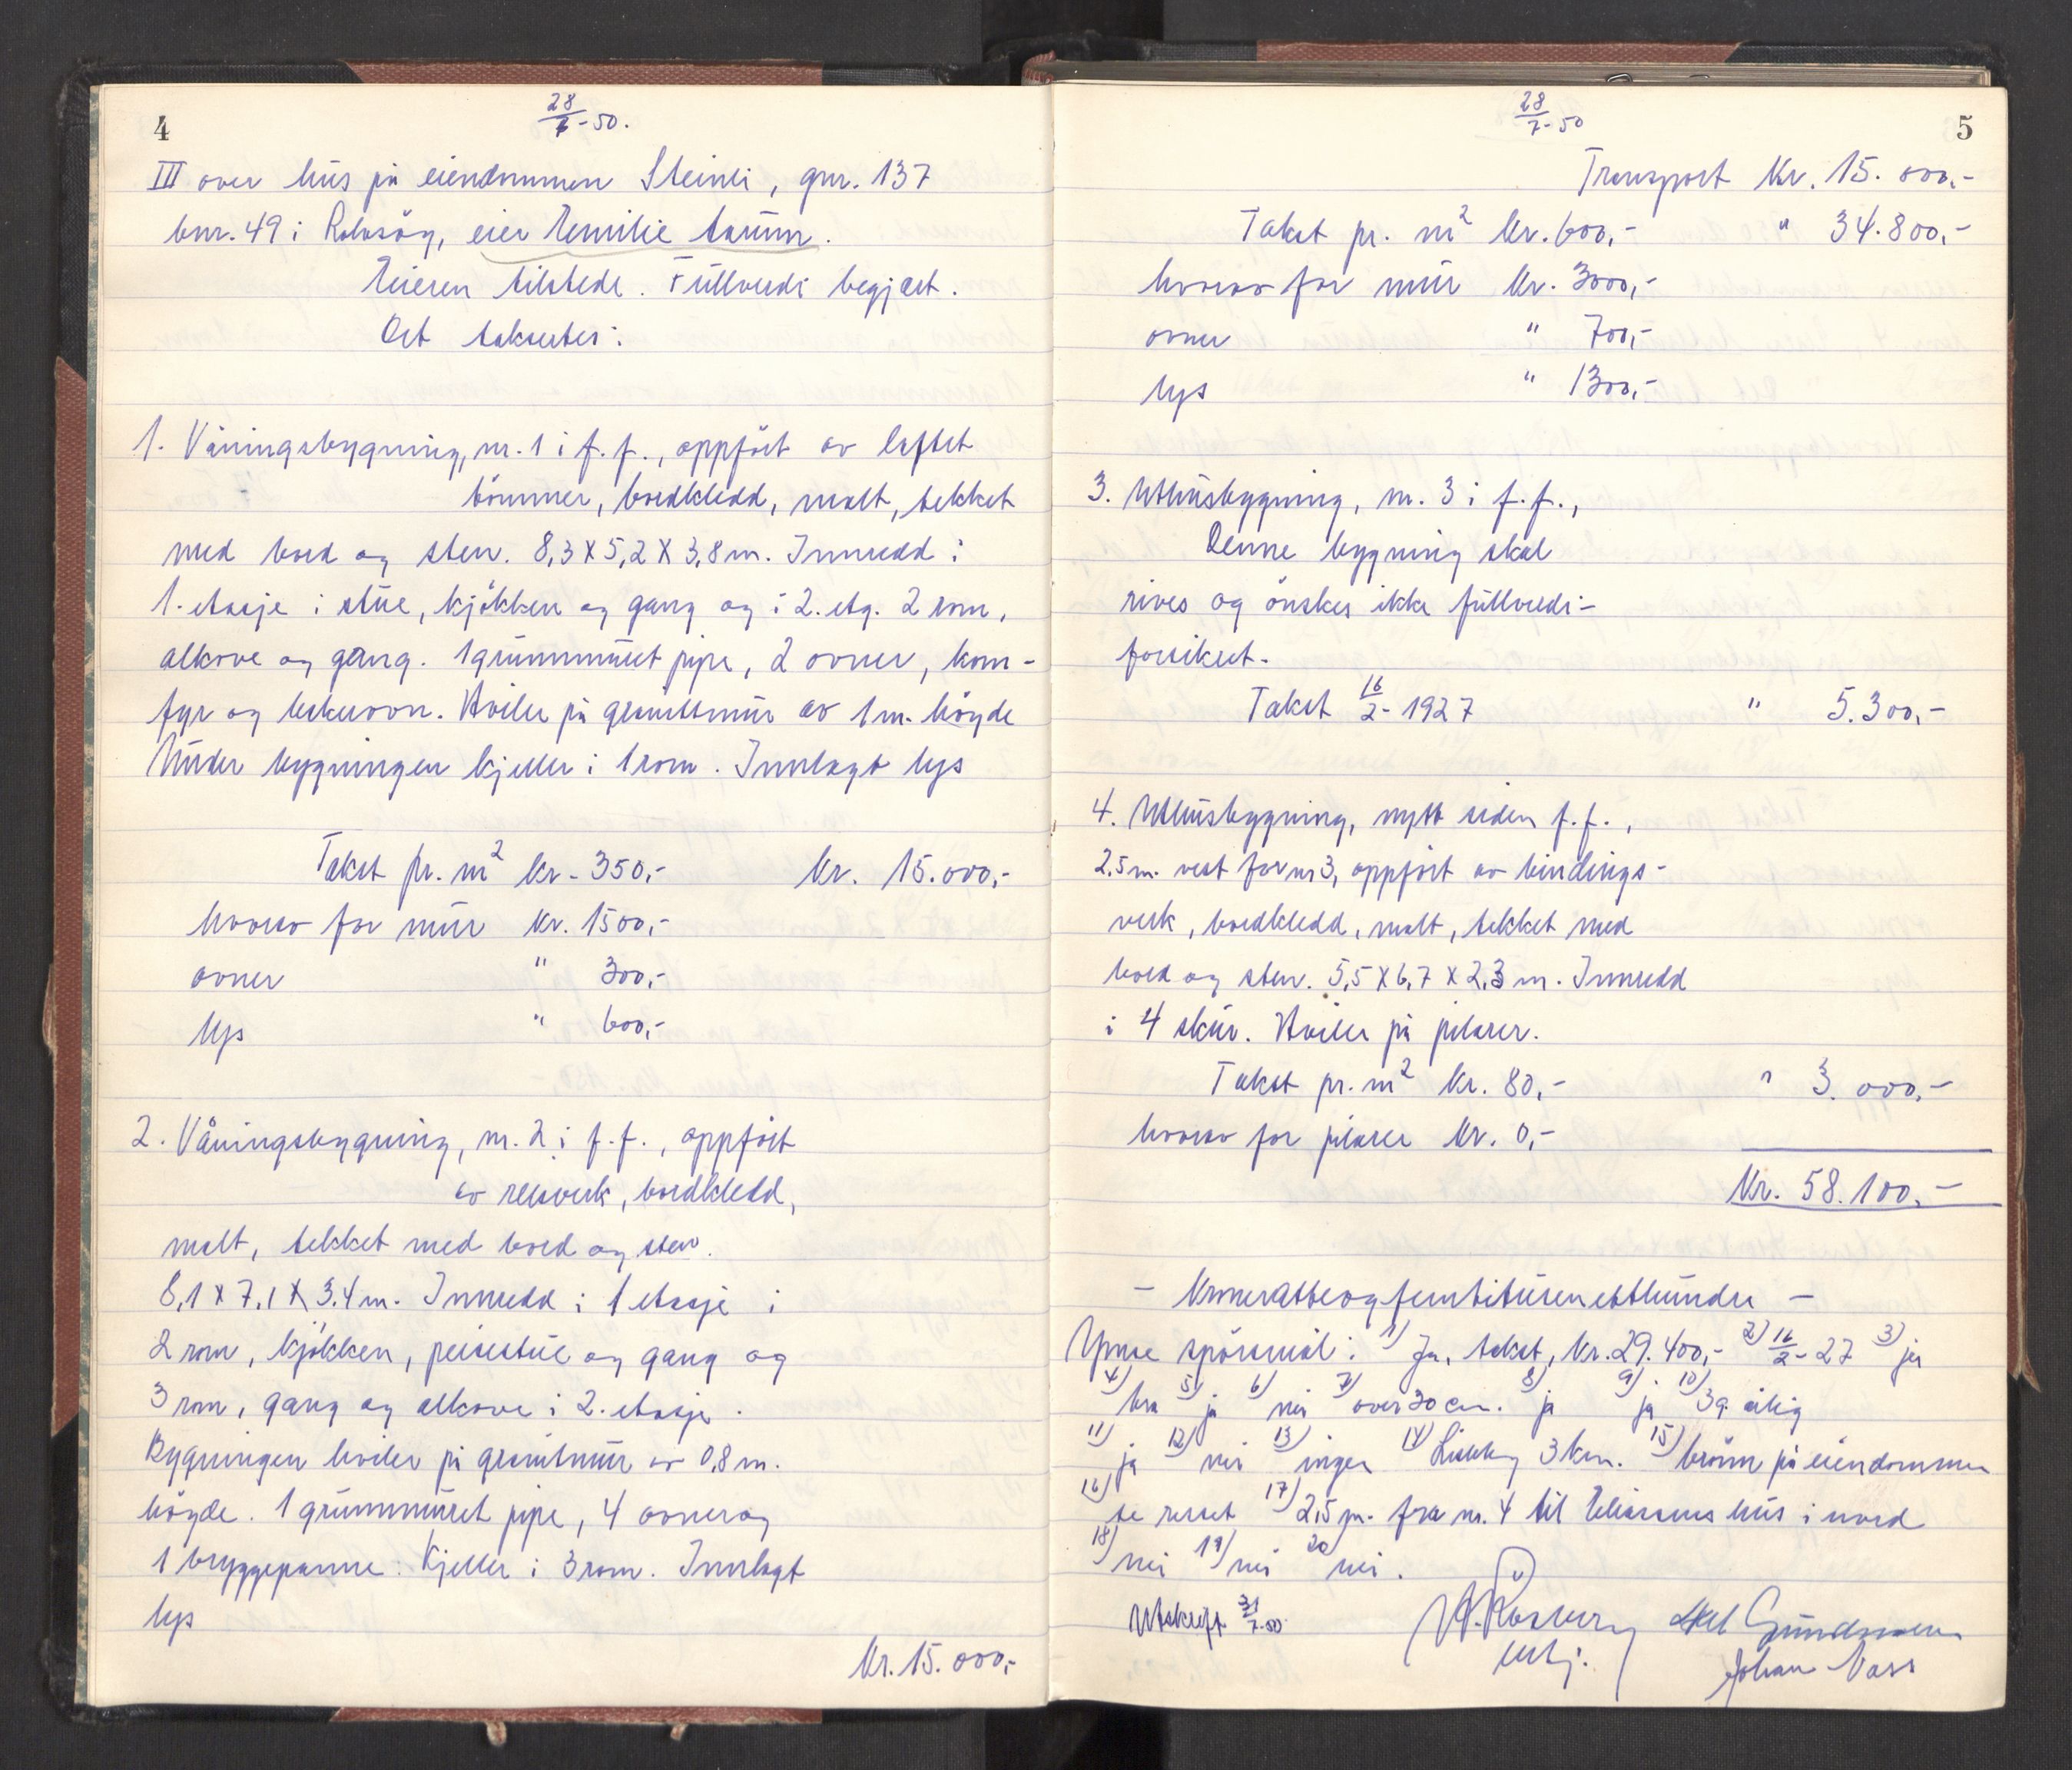 4
28/7-50.
III over hus på eiendommen Steinli, gnr. 137
bnr. 49 i Rolvsøy, eier Emilie Aaum.
Eieren tilstede. Fullverdi begjært.
Det takseres:
1. Våningsbygning, nr. 1 i f.f., oppført av laftet
tømmer, bordkledd, malt, tekket
med bord og sten. 8,3 X 5,2 X 3,8 m. Innredd i
1. etasje i stue, kjøkken og gang og i 2. etg. 2 rom,
alkove og gang. 1 grunnmuret pipe, 2 ovner, kom-
fyr og bakerovn. Hviler på granittmur av 1 m. høyde
Under bygningen kjeller i 1 rom. Innlagt lys
Takst pr. m2 kr. 350,- kr. 15.000,-
hvorav for mur kr. 1500,-
ovner " 300,-
lys " 600,-
2. Våningsbygning, nr. 2 i f.f., oppført
av reisverk, bordkledd,
malt, tekket med bord og sten.
8,1 X 7,1 X 3,4 m. Innredd i 1 etasje i
2 rom, kjøkken, peisestue og gang og
3 rom, gang og alkove i 2. etasje.
Bygningen hviler på granitmur av 0,8 m.
høyde. 1 grunnmuret pipe, 4 ovner og
1 bryggepanne. Kjeller i 3 rom. Innlagt
lys
Kr. 15.000,-
28/7-50
5
Transport Kr. 15.000,-
Takst pr. m2 kr. 600,- " 34.800,-
hvorav for mur kr. 3000,-
ovner " 700,-
lys " 1300,-
3. Uthusbygning, nr. 3 i f.f.,
Denne bygning skal
rives og ønskes ikke fullverdi-
forsikret.
Takst 16/2-1927 " 5.300,-
4. Uthusbygning, nytt siden f.f.,
2,5 m. vest for nr 3, oppført av bindings-
verk, bordkledd, malt, tekket med
bord og sten. 5,5 X 6,7 X 2,3 m. Innredd
i 4 skur. Hviler på pilarer.
Takst pr. m2 kr. 80,- " 3.000,-
hvorav for pilarer kr. 0,-
Kr. 58.100,-
- Kroneråtteogfemtitusenetthundre -
Ymse spørsmål: 1) Ja, takst, kr. 29.400,- 2) 16/2-27 3) ja
4) bra 5) ja 6) nei 7) over 30 cm. 8) ja 9) ja 10) 3 g. årlig
11) ja 12) nei 13) ingen 14) Lisleby 3 km. 15) brønn på eiendommen
16) se risset 17) 2,5 m. fra nr. 4 til Eliassens hus i nord
18) nei 19) nei 20) nei.
Utskrift 31/7-50
Gundersen
Johan Nass